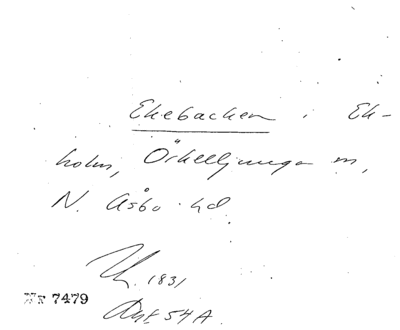 Ekebacken i Ek-
holm, Örkelljunga sn,
N. Åsbo hd.
1831
Nr 7479
54 A.